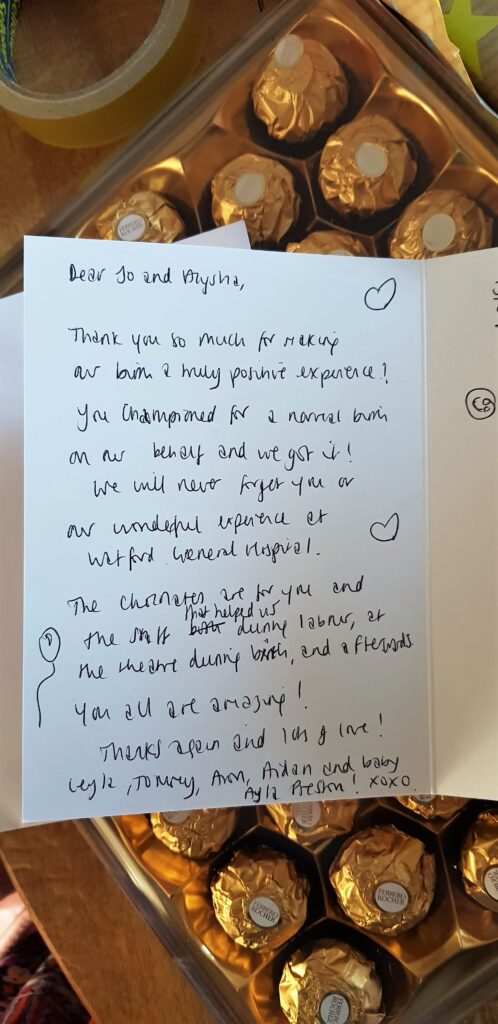 FERRERO
ROCHER
Dear Jo and Alysha,
Thank you so much for making
our birth a truly positive experience!
You championed for a normal birth
on our behalf and we got it!
We will never forget you or
our wonderful experience at
Watford General Hospital.
The chocolates are for you and
that helped us
the staff during labour, at
the theatre during birth, and afterwards
You all are amazing!
Thanks again and lots of love!
Leyla, Tommy, Aron, Aidan and baby
Ayla Preston! xoxo.
FERRERO
ROCHER
FERRERO
ROCHER
FERRERO
ROCHER